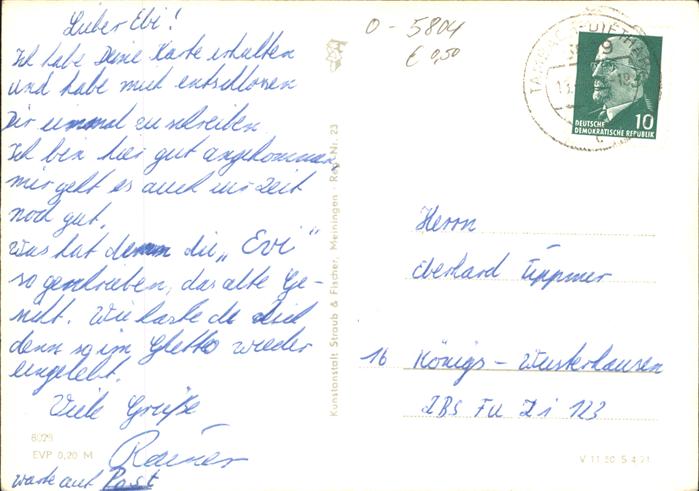 Lieber Ebi!
Ich habe Deine Karte erhalten
und habe mich entschlossen
Dir einmal zu schreiben.
Ich bin hier gut angekommen,
mir geht es auch zur Zeit
noch gut.
Was hat denn die „Evi"
so geschrieben, das alte Ge-
. Wie hast du dich
denn so im Ghetto wieder
eingelebt.
Viele Grüße
Rainer
warte auf Post
6029
EVP 0,20 M
Kunstanstalt Straub & Fischer, Meiningen · Reg.-Nr. 23
0 - 5804
€ 0,50
TAMBACH-DIETHARZ
10
DEUTSCHE
DEMOKRATISCHE REPUBLIK
Herrn
Eberhard Tippmer
16 Königs - Wusterhausen
ZBS Fu Zi 123
V 11 50 S 4 21